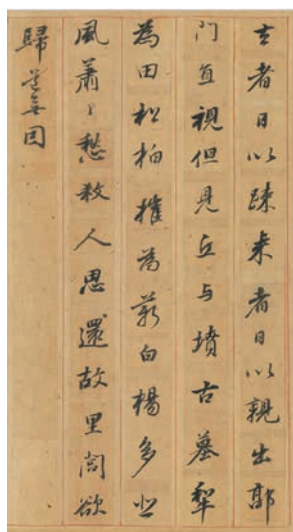 去者日以踈来者日以親出郭
門直視但見丘与墳古墓犁
為田松柏摧為薪白楊多悲
風蕭〻愁殺人思還故里閭欲
歸道無因